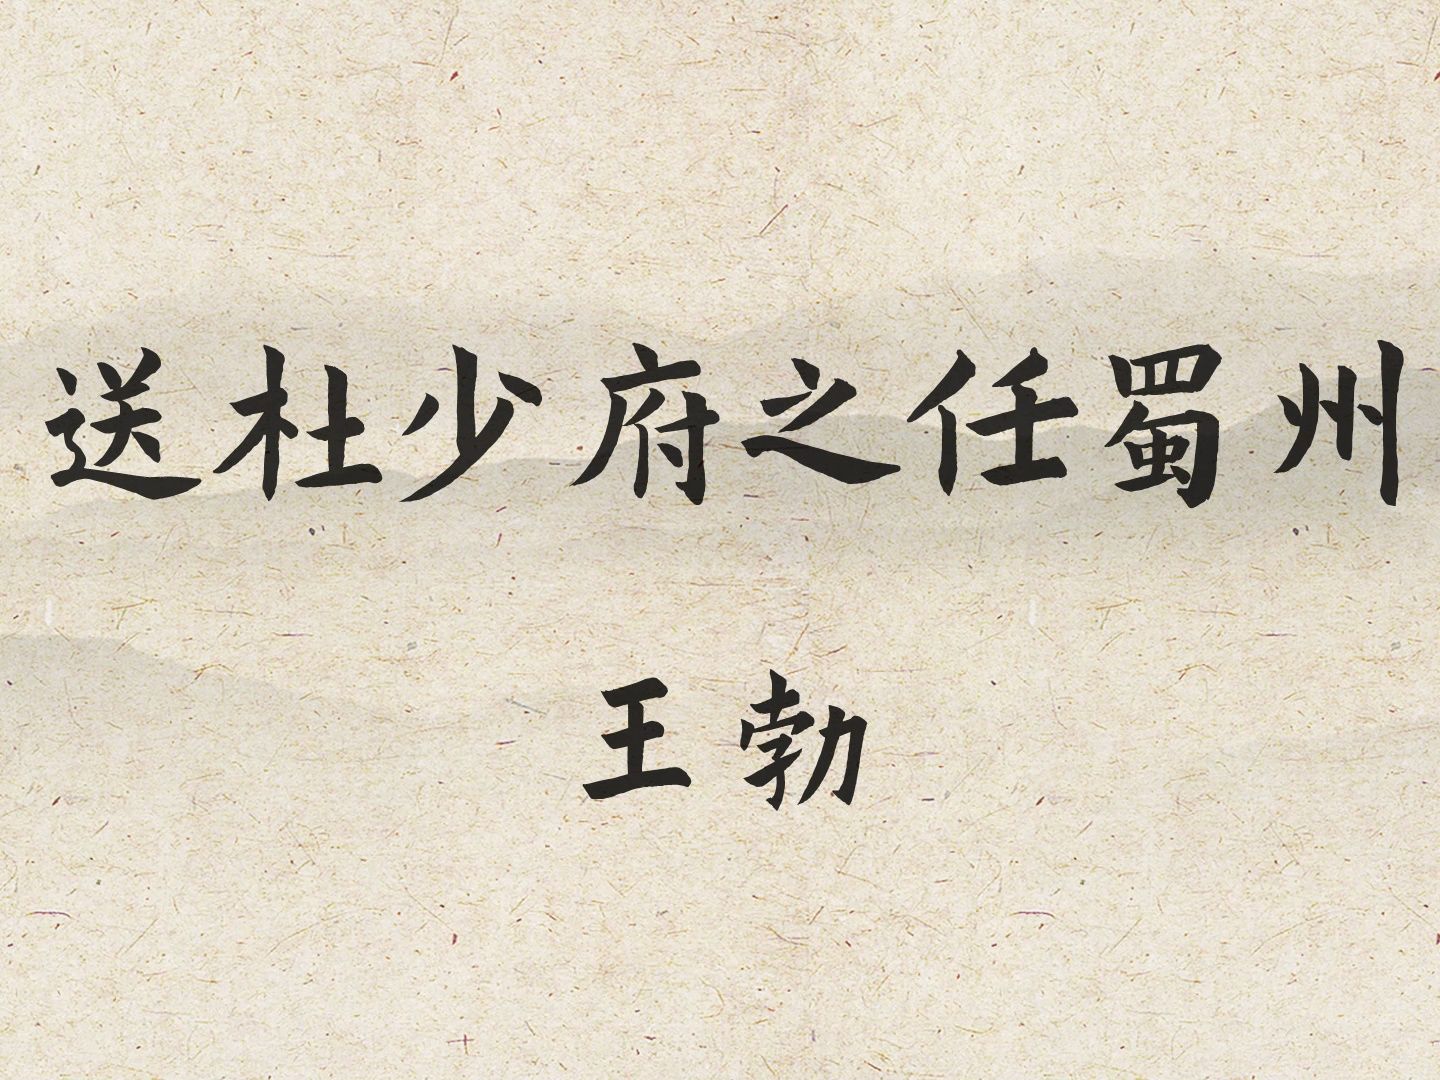 送杜少府之任蜀州
王勃